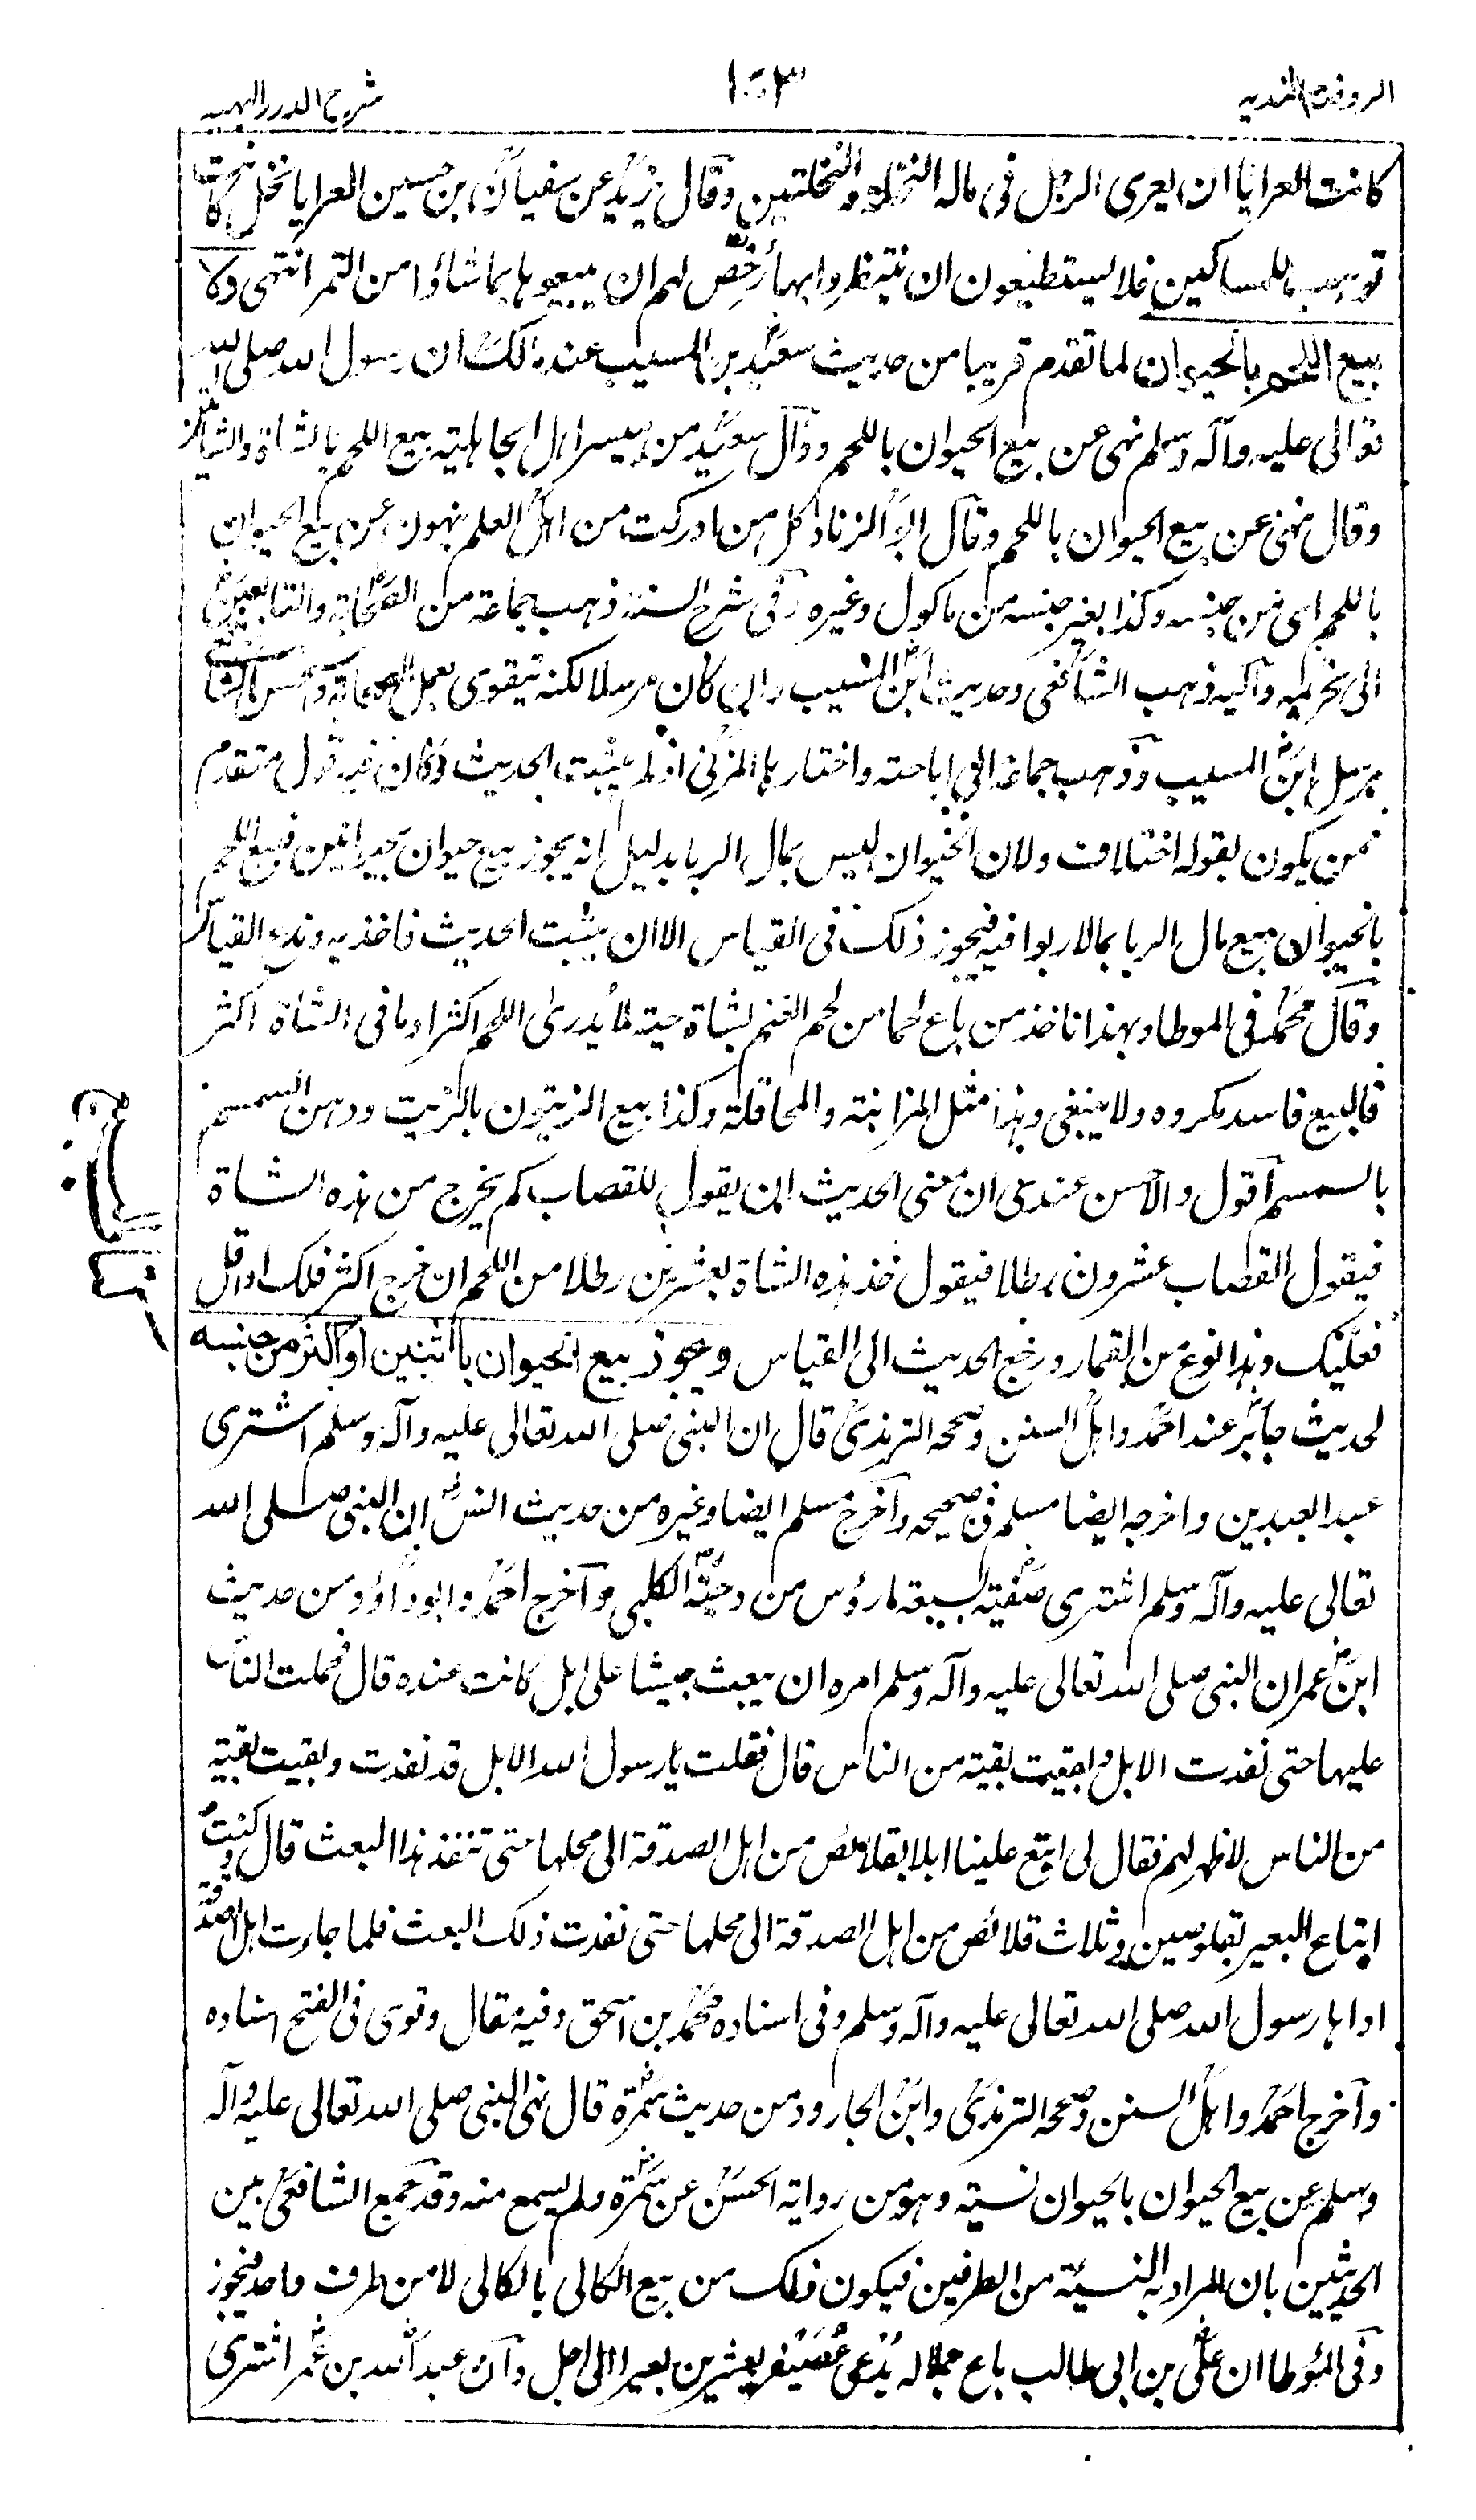 الروضة الندية
١٥٣
شرح الدرر البهية
كانت العرايا ان يعرى الرجل فى ماله النخلة والنخلتين وقال يزيد عن سفيان بن حسين العرايا نخل كانت
توهب للمساكين فلا يستطيعون ان ينتظروا بها رخص لهم ان يبيعوها بما شاؤا من التمر انتهى ولا
بيع اللحم بالحيوان لما تقدم قريبا من حديث سعيد بن المسيب عند مالك ان رسول الله صلى الله
تعالى عليه وآله وسلم نهى عن بيع الحيوان باللحم وقال سعيد من ميسر اهل الجاهلية بيع اللحم بالشاة والشاتين
وقال نهى عن بيع الحيوان باللحم وقال ابو الزناد كل من ادركت من اهل العلم ينهون عن بيع الحيوان
باللحم اى من جنسه وكذا بغير جنسه من ماكول وغيره وفى شرح السنة ذهب جماعة من الصحابة والتابعين
الى تحريمه واليه ذهب الشافعى وحديث ابن المسيب وان كان مرسلا لكنه يتقوى بعمل الصحابة واستحسن الشافعى
مرسل ابن المسيب وذهب جماعة الى اباحته واختارها المزنى اذ لم يثبت الحديث وكان فيه قول متقدم
ممن يكون بقوله اختلاف ولان الحيوان ليس بمال الربا بدليل انه يجوز بيع حيوان بحيوانين فبيع اللحم
بالحيوان بيع مال الربا بما لا ربوا فيه فيجوز ذلك فى القياس الا ان يثبت الحديث فناخذ به وندع القياس
وقال محمد فى الموطا وبهذا ناخذ من باع لحما من لحم الغنم بشاة حية لا يدرى اللحم اكثر او ما فى الشاة اكثر
فالبيع فاسد مكروه ولا ينبغى وهذا مثل المزابنة والمحاقلة وكذا بيع الزيتون بالزيت ودهن السمسم
بالسمسم اقول والاحسن عندى ان معنى الحديث ان يقول للقصاب كم يخرج من هذه الشاة
فيقول القصاب عشرون رطلا فيقول خذ هذه الشاة بعشرين رطلا من اللحم ان خرج اكثر فلك او اقل
فعليك وهذا نوع من القمار ورجع الحديث الى القياس ويجوز بيع الحيوان باثنين او اكثر من جنسه
لحديث جابر عند احمد واهل السنن وصححه الترمذى قال ان النبى صلى الله تعالى عليه وآله وسلم اشترى
عبدا بعبدين واخرجه ايضا مسلم فى صحيحه واخرج مسلم ايضا وغيره من حديث انس ان النبى صلى الله
تعالى عليه وآله وسلم اشترى صفية بسبعة ارؤس من دحية الكلبى واخرج احمد وابو داؤد من حديث
ابن عمر ان النبى صلى الله تعالى عليه وآله وسلم امره ان يبعث جيشا على ابل كانت عنده قال فحملت الناس
عليها حتى نفدت الابل وبقيت بقية من الناس قال فقلت يا رسول الله الابل قد نفدت وبقيت بقية
من الناس لا ظهر لهم فقال لى ابتع علينا ابلا بقلائص من ابل الصدقة الى محلها حتى تنفذ هذا البعث قال وكنت
ابتاع البعير بقلوصين وثلاث قلائص من ابل الصدقة الى محلها حتى نفدت ذلك البعث فلما جاءت ابل الصدقة
اداها رسول الله صلى الله تعالى عليه وآله وسلم وفى اسناده محمد بن اسحق وفيه مقال وقوى فى الفتح اسناده
واخرج احمد واهل السنن وصححه الترمذى وابن الجارود من حديث سمرة قال نهى النبى صلى الله تعالى عليه وآله
وسلم عن بيع الحيوان بالحيوان نسية وهو من رواية الحسن عن سمرة ولم يسمع منه وقد جمع الشافعى بين
الحديثين بان المراد به النسيئة من الطرفين فيكون ذلك من بيع الكالى بالكالى لا من طرف واحد فيجوز
وفى المؤطا ان على بن ابى طالب باع جملا له يدعى عصيفر بعشرين بعيرا الى اجل وان عبد الله بن عمر اشترى